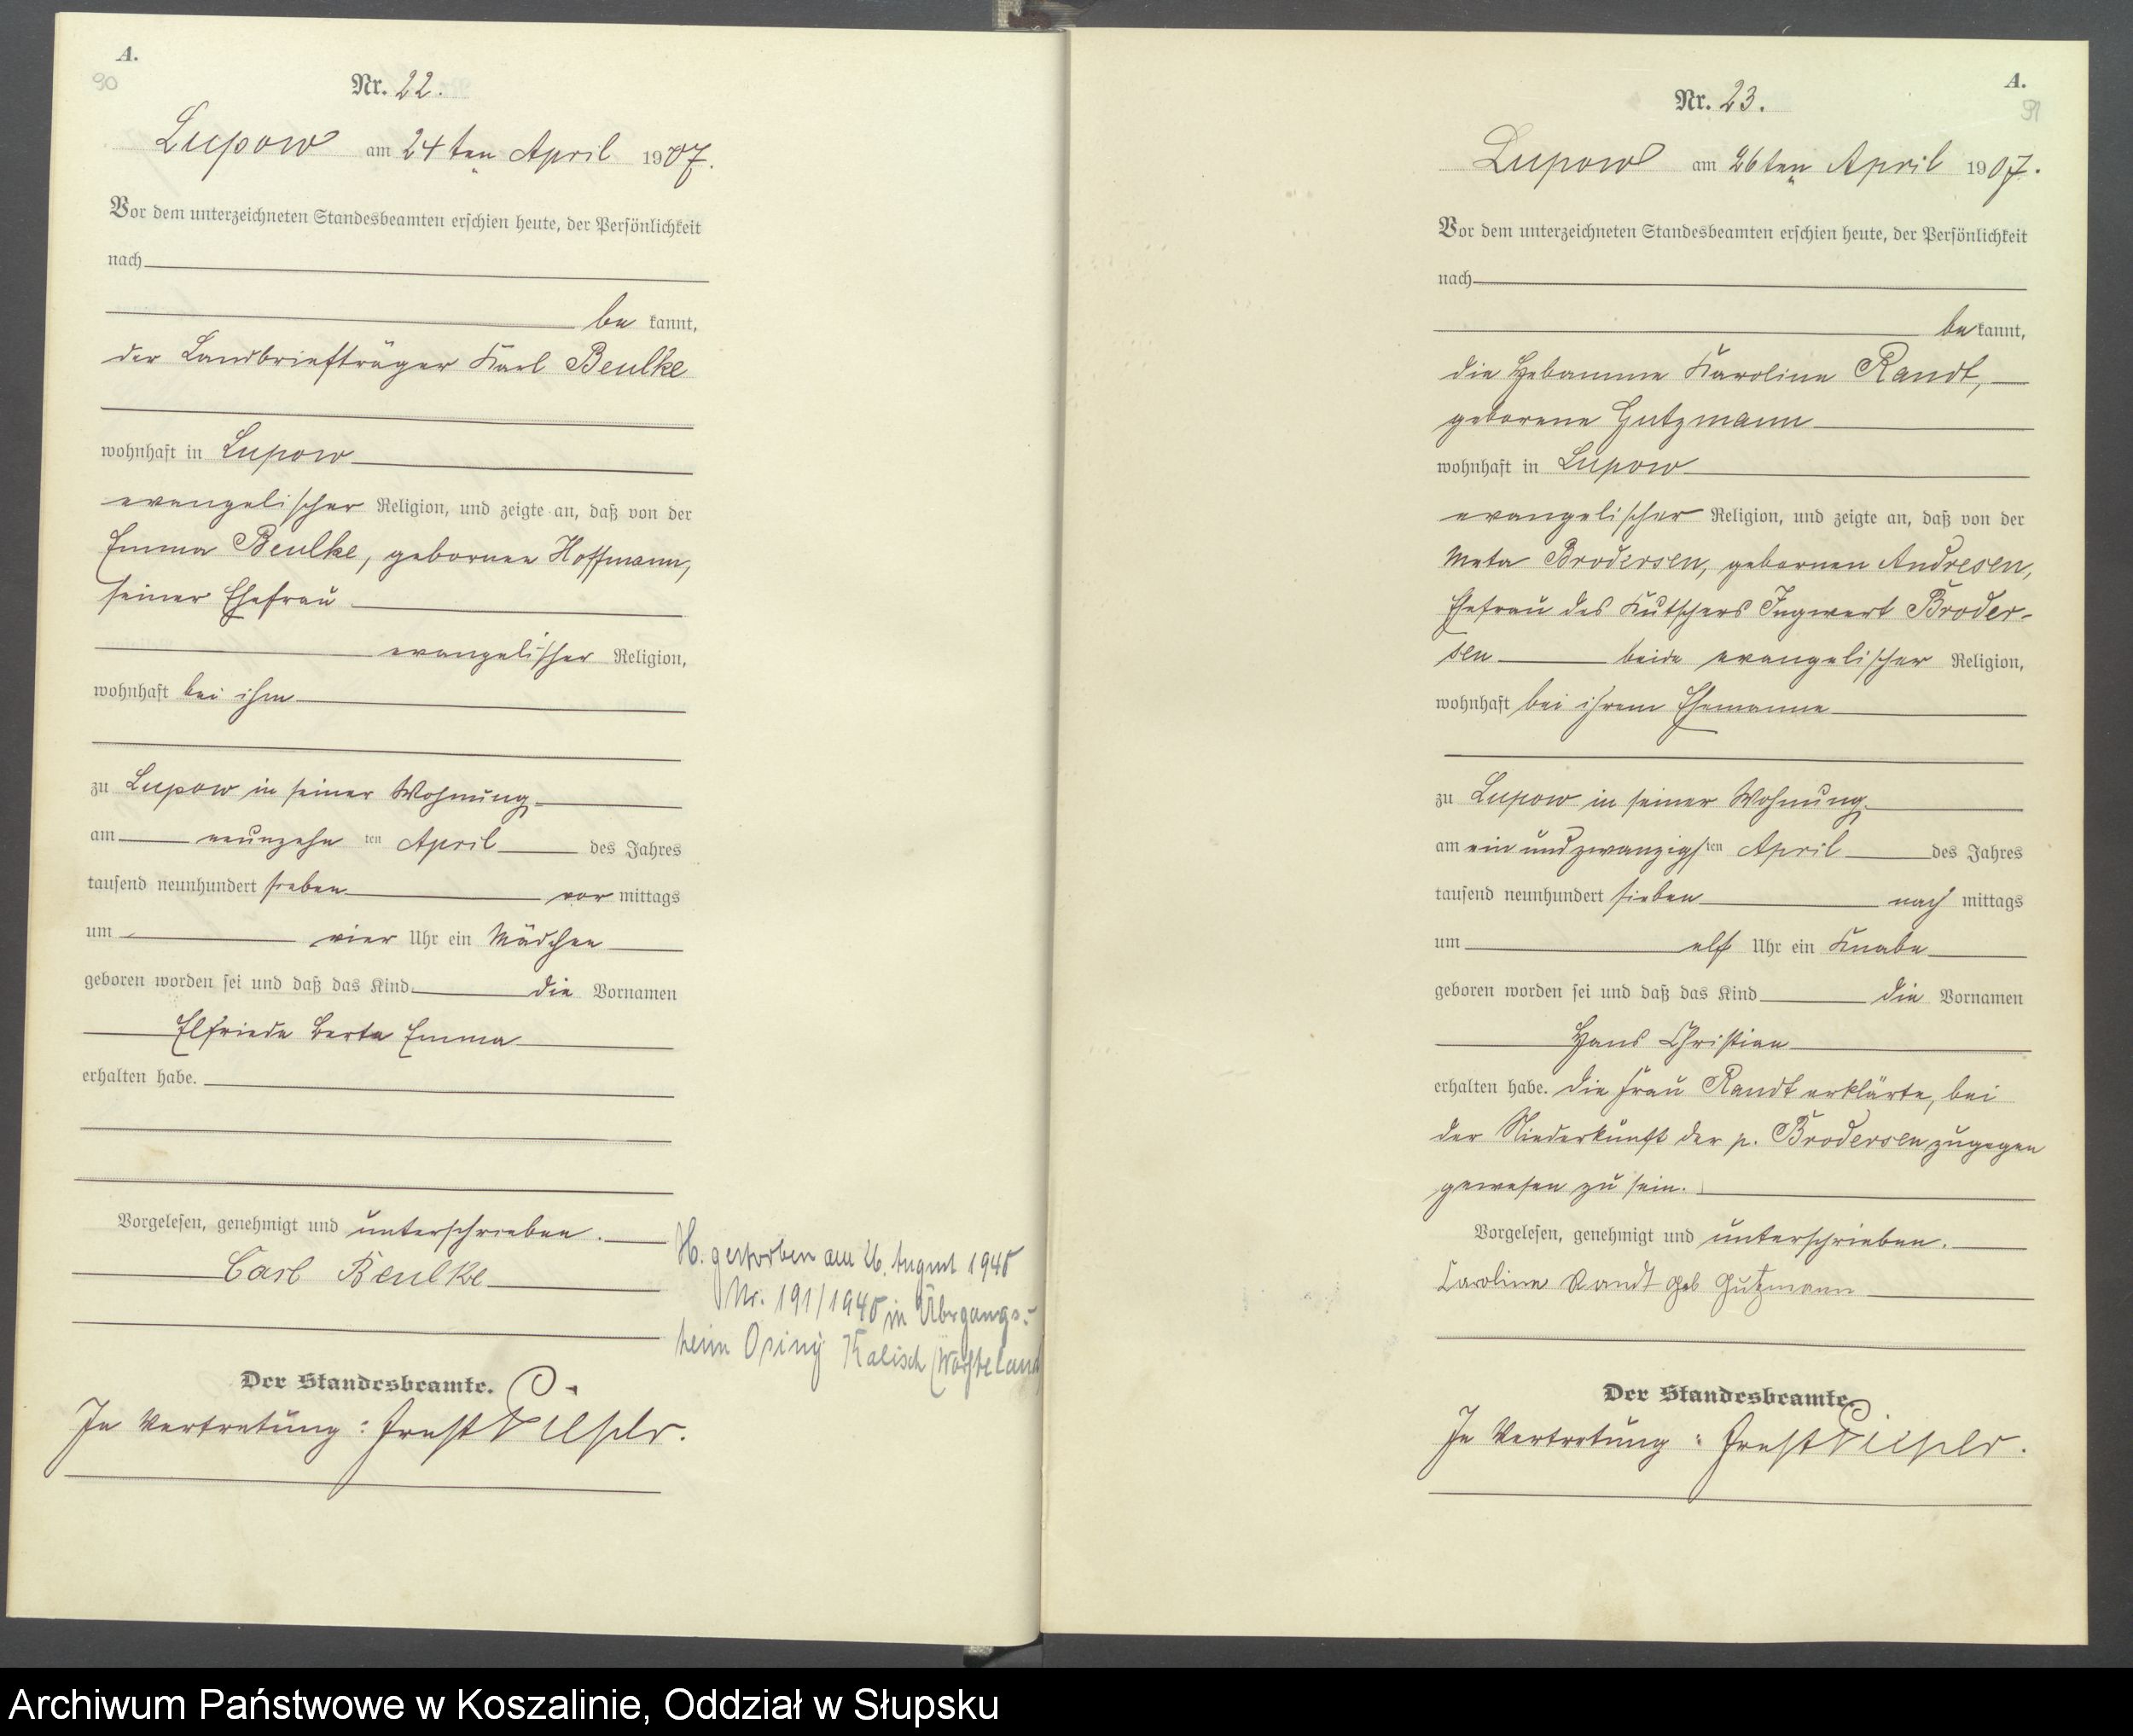 A.
90
Nr. 22.
Lupow am 24ten April 1907.
Vor dem unterzeichneten Standesbeamten erschien heute, der Persönlichkeit
nach
be kannt,
der Landbriefträger Karl Beulke
wohnhaft in Lupow
evangelischer Religion, und zeigte an, daß von der
Emma Beulke, gebornen Hoffmann,
seiner Ehefrau
evangelischer Religion,
wohnhaft bei ihm
zu Lupow in seiner Wohnung
am neunzehn ten April des Jahres
tausend neunhundert sieben vor mittags
um vier Uhr ein Mädchen
geboren worden sei und daß das Kind die Vornamen
Elfriede Berta Emma
erhalten habe.
Vorgelesen, genehmigt und unterschrieben.
Carl Beulke
Der Standesbeamte.
In Vertretung: Ernst
H. gestorben am 26. August 1940
Nr. 191/1940 in Übrgangs-
heim Kalisch
A.
91
Nr. 23.
Lupow am 26ten April 1907.
Vor dem unterzeichneten Standesbeamten erschien heute, der Persönlichkeit
nach
be kannt,
die Hebamme Karoline Randt,
geborene Gutzmann
wohnhaft in Lupow
evangelischer Religion, und zeigte an, daß von der
Meta Brodersen, gebornen Andresen,
Ehefrau des Kutschers Ingwert Broder-
sen beide evangelischer Religion,
wohnhaft bei ihrem Ehemanne
zu Lupow in seiner Wohnung
am ein und zwanzigsten April des Jahres
tausend neunhundert sieben nach mittags
um elf Uhr ein Knabe
geboren worden sei und daß das Kind die Vornamen
Hans Christian
erhalten habe. Die Frau Randt erklärte, bei
der Niederkunft der p. Brodersen zugegen
gewesen zu sein.
Vorgelesen, genehmigt und unterschrieben.
Caroline Randt geb Gutzmann
Der Standesbeamte.
In Vertretung: Ernst
Archiwum Państwowe w Koszalinie, Oddział w Słupsku